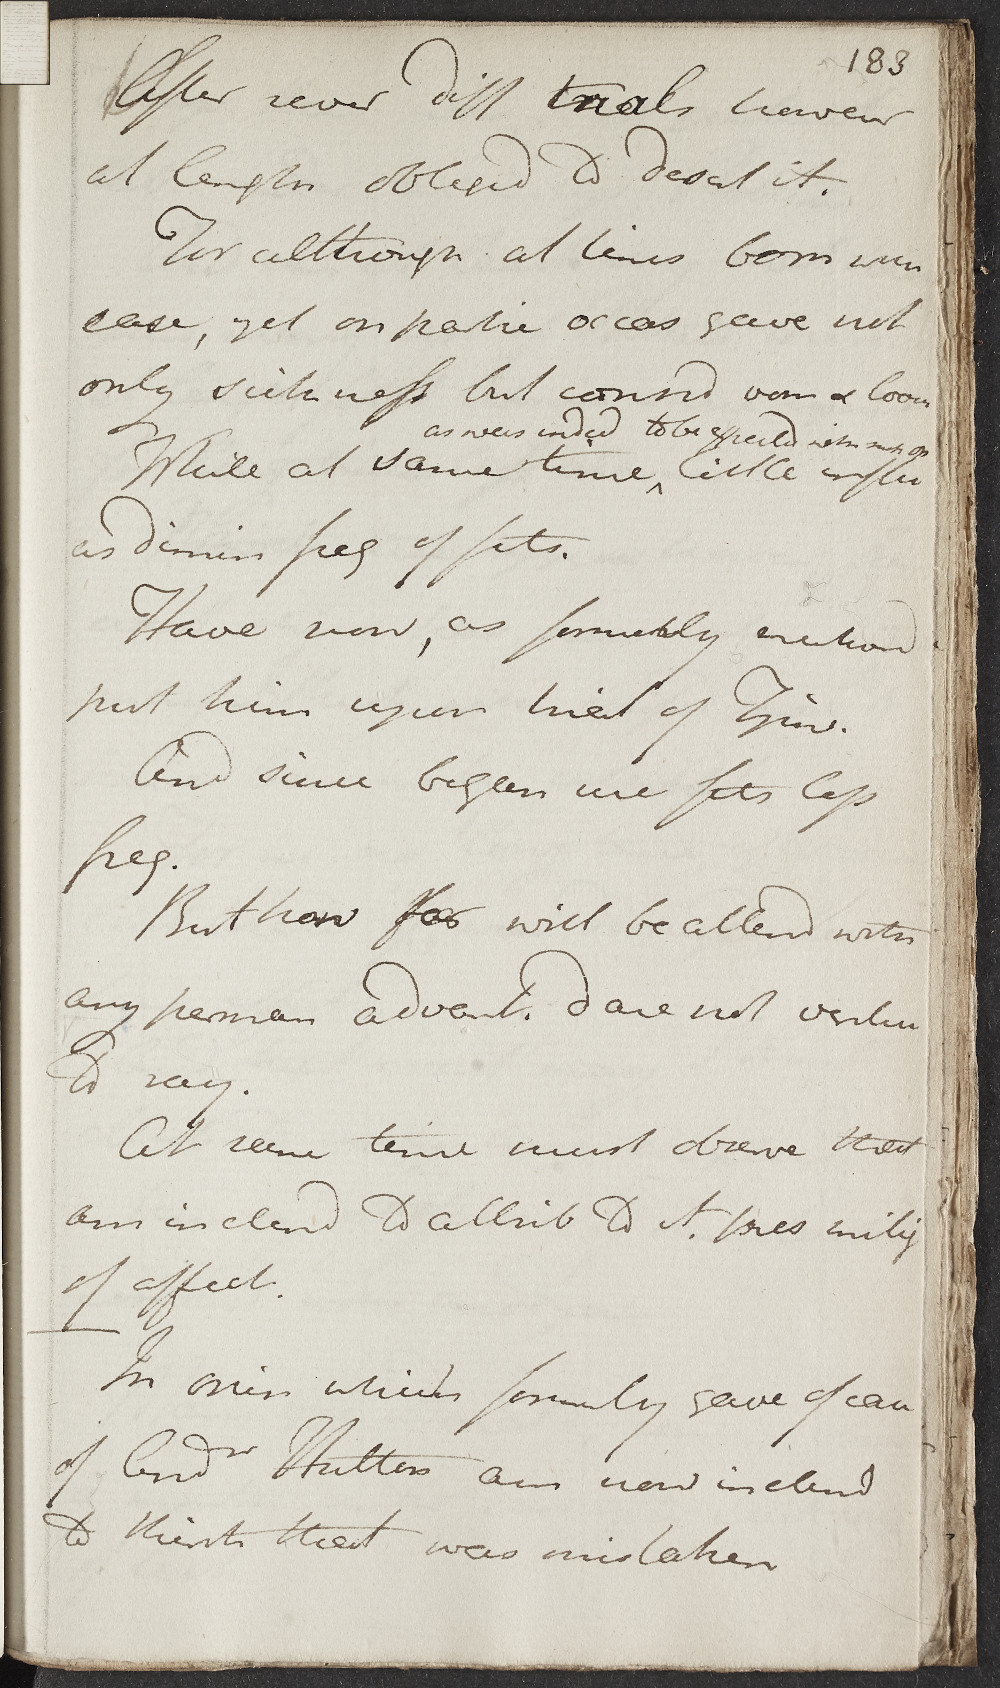 183
After sever diff trials howevr
at length obliged to desert it.
For although at times born with
ease, yet on partic occas gave not
only sickness but consid vom & loos
as was indeed to be expected with
While at same time ^ little influ
as dimin freq of fits.
Have now, as formerly mentiond
put him upon trial of Tjin.
And since began use fits less
freq.
But how far will be attend with
any perman advant. dare not ventu
to say.
At same time must observe that
am inclend to attrib to it. pres mitig
of affect.
In opin which formerly gave of cau
of Andw Hutton am now inclend
to think that was mistaken